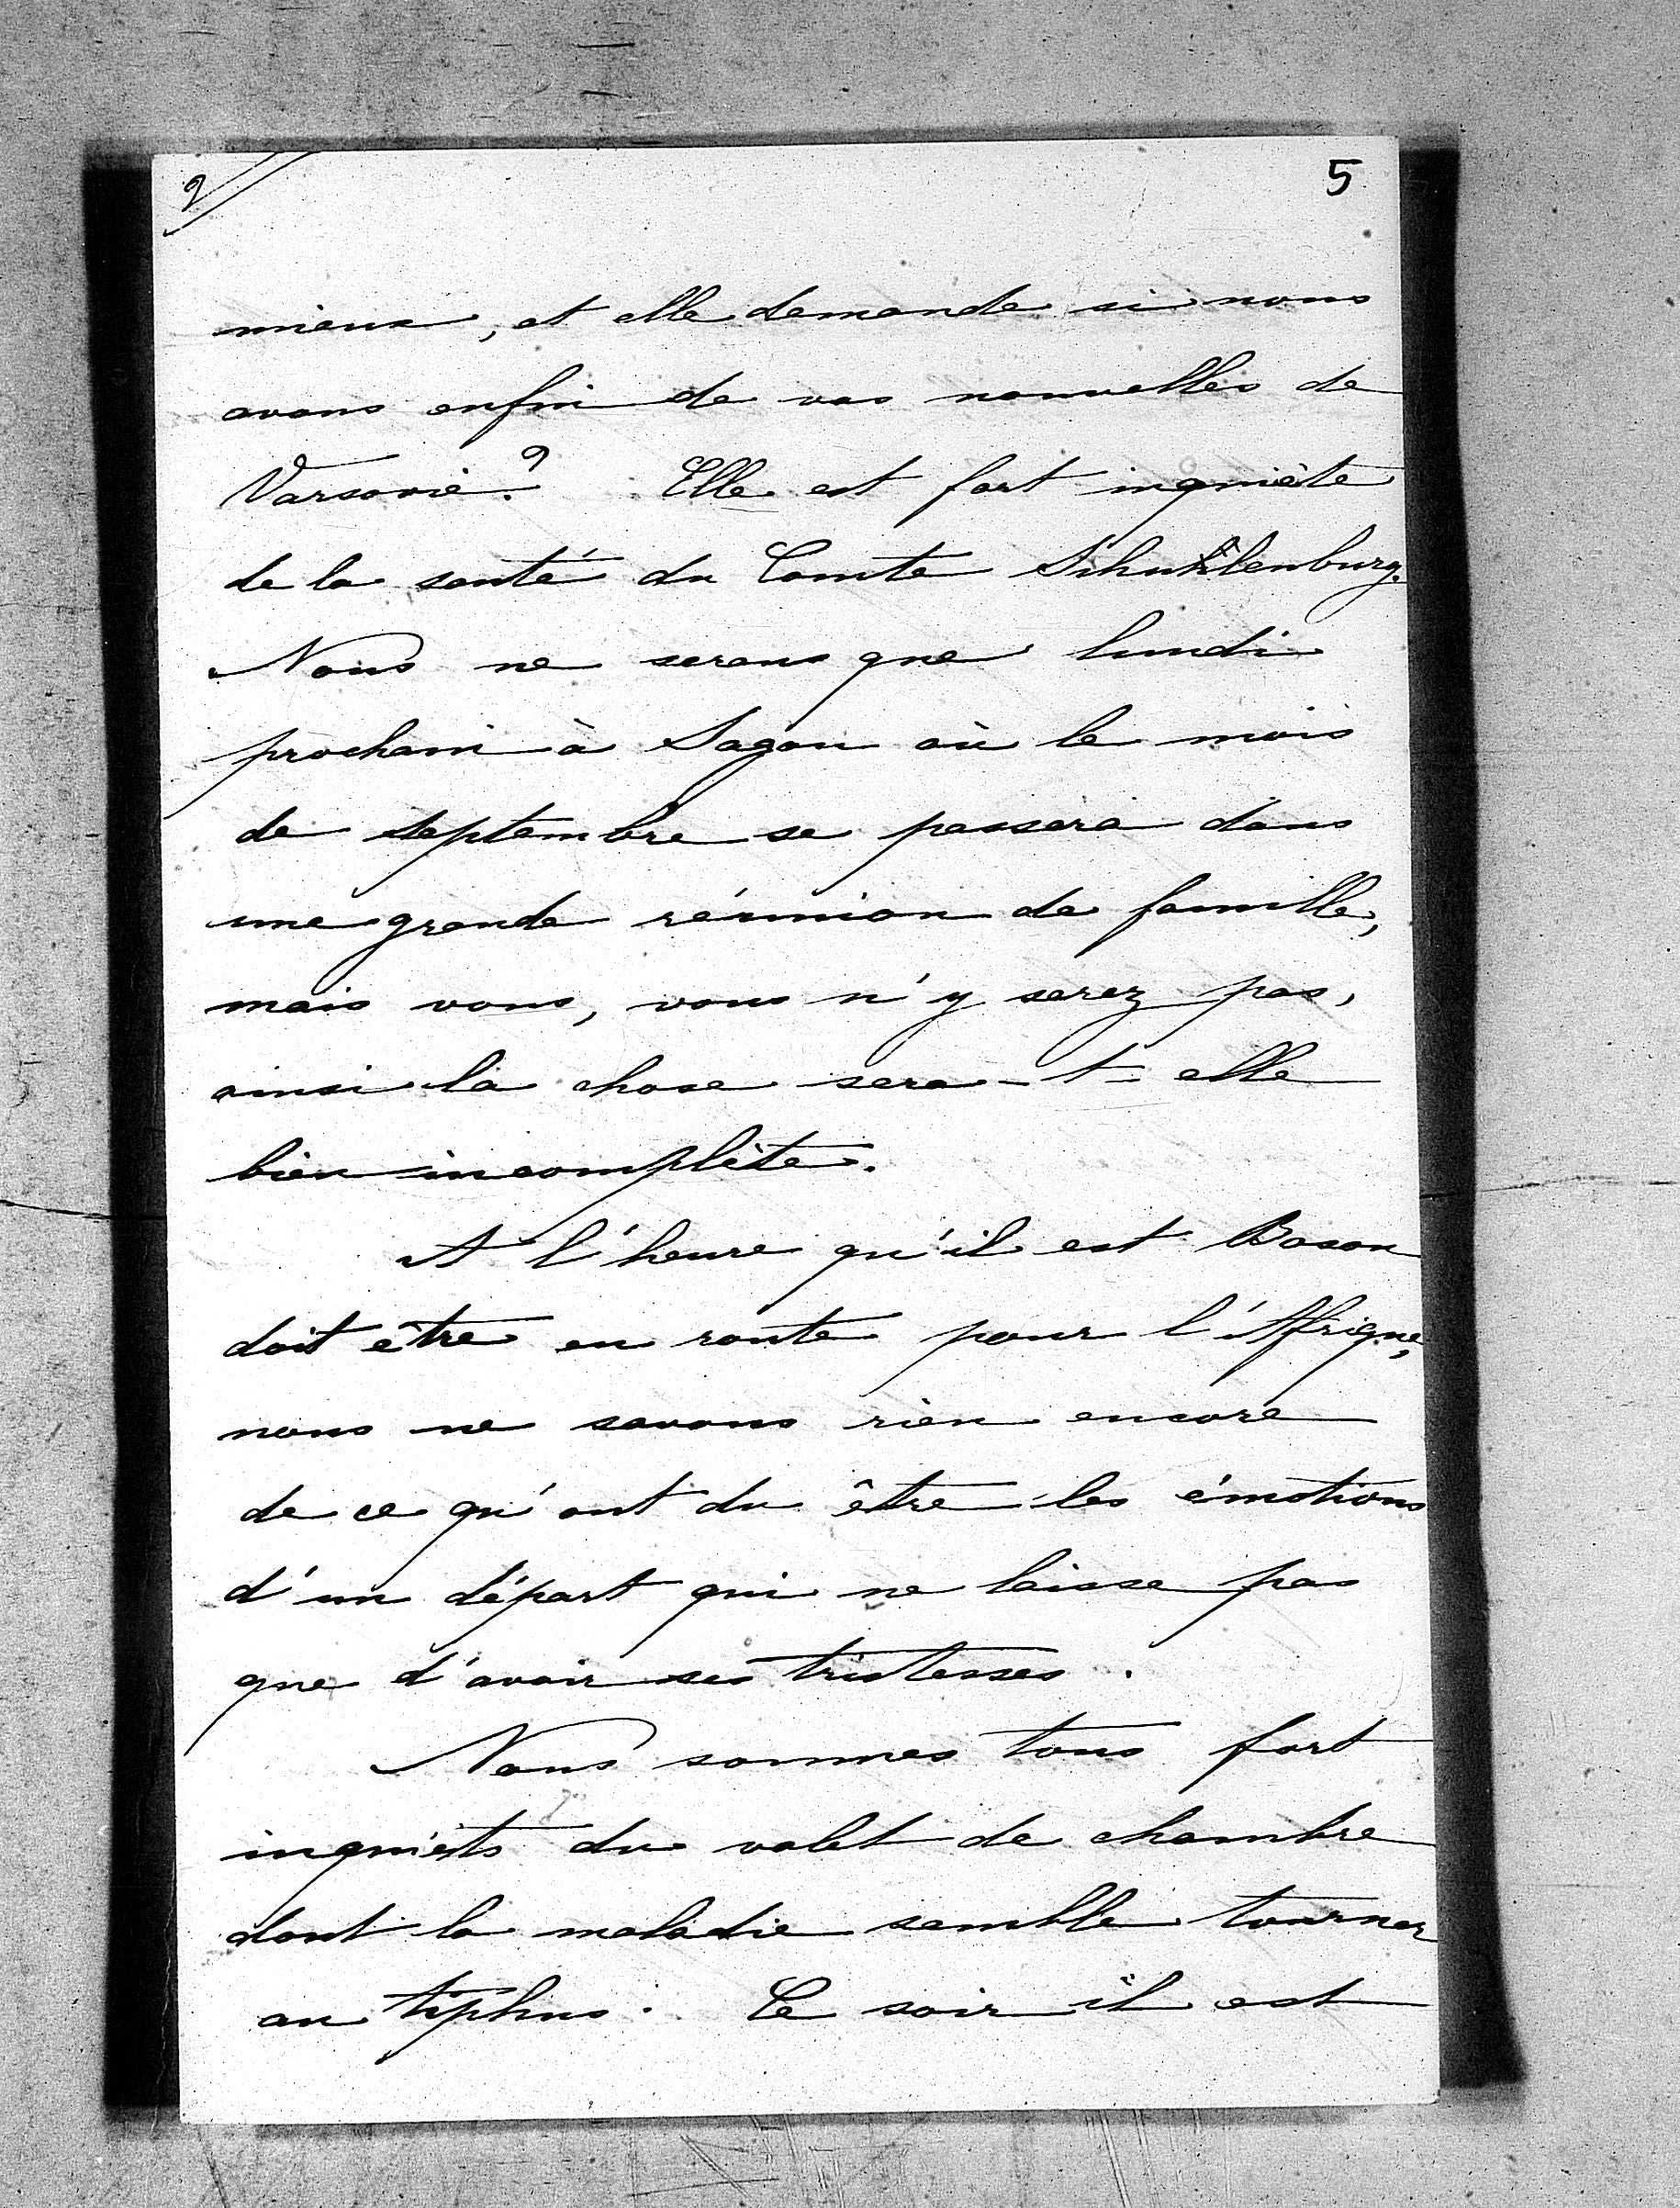 2
5
mieux, et elle demande si nous
avons enfin de vos nouvelles de
Varsovie? Elle est fort inquiète
de la santé du Comte Schuhlenburg.
Nous ne serons que lundi
prochain à Sagan où le mois
de septembre se passera dans
une grande réunion de famille,
mais vous, vous n'y serez pas,
ainsi la chose sera-t-elle
bien incomplète.
A l'heure qu'il est Boson
doit être en route pour l'Afrique,
nous ne savons rien encore
de ce qu'ont du être les émotions
d'un départ qui ne laisse pas
que d'avoir ses tristesses.
Nous sommes tous fort
inquiets du valet de chambre
dont la maladie semble tourner
au typhus. Ce soir il est